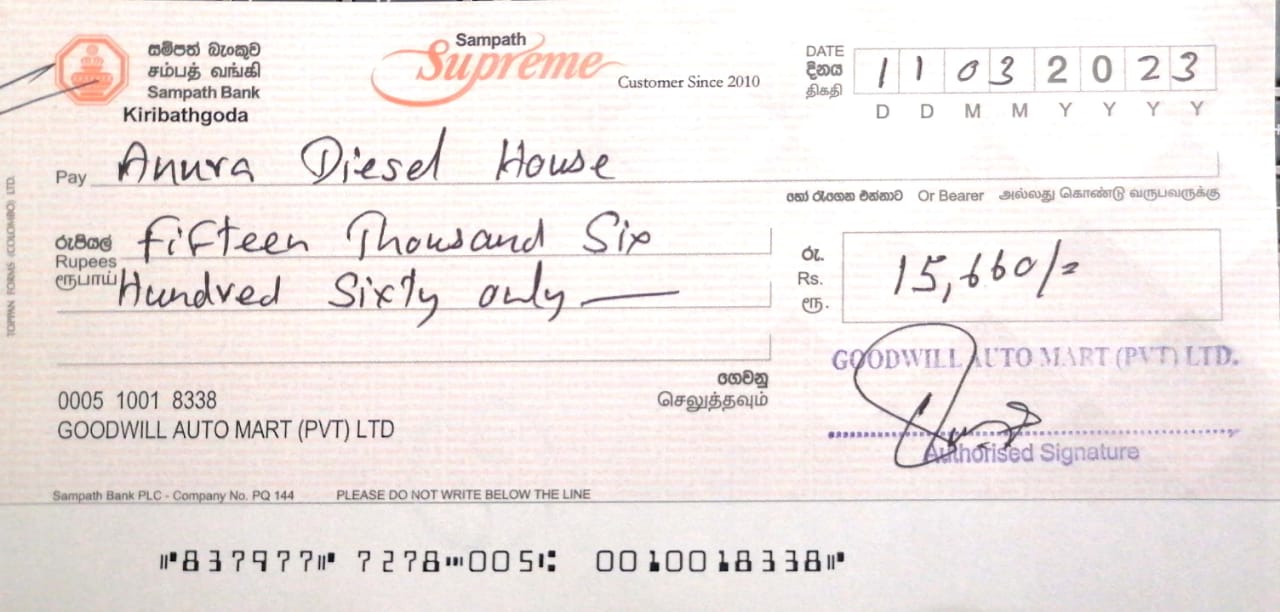 සම්පත් බැංකුව
சம்பத் வங்கி
Sampath Bank
Kiribathgoda
Sampath
Supreme
Customer Since 2010
DATE
දිනය
திகதி
1 1 0 3 2 0 2 3
D D M M Y Y Y Y
Pay Anura Diesel House
හෝ රැගෙන එන්නාට Or Bearer அல்லது கொண்டு வருபவருக்கு
රුපියල්
Rupees
ரூபாய்
Fifteen Thousand Six
Hundred Sixty only
රු.
Rs.
ரூ.
15,660/=
GOODWILL AUTO MART (PVT) LTD.
ගෙවනු
செலுத்தவும்
0005 1001 8338
GOODWILL AUTO MART (PVT) LTD
Authorised Signature
Sampath Bank PLC - Company No. PQ 144 PLEASE DO NOT WRITE BELOW THE LINE
⑈837977⑈ 7278⑉005⑆ 0010018338⑈
TOPPAN FORMS (COLOMBO) LTD.